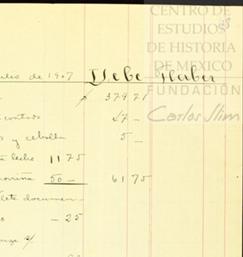 CENTRO DE
ESTUDIOS
DE HISTORIA
DE MEXICO
FUNDACIÓN
Carlos Slim
de 1907 Debe Haber
379 71
contado 27 —
y cebolla 5 —
leche 11 75
50 — 61 75
este documen
— 25